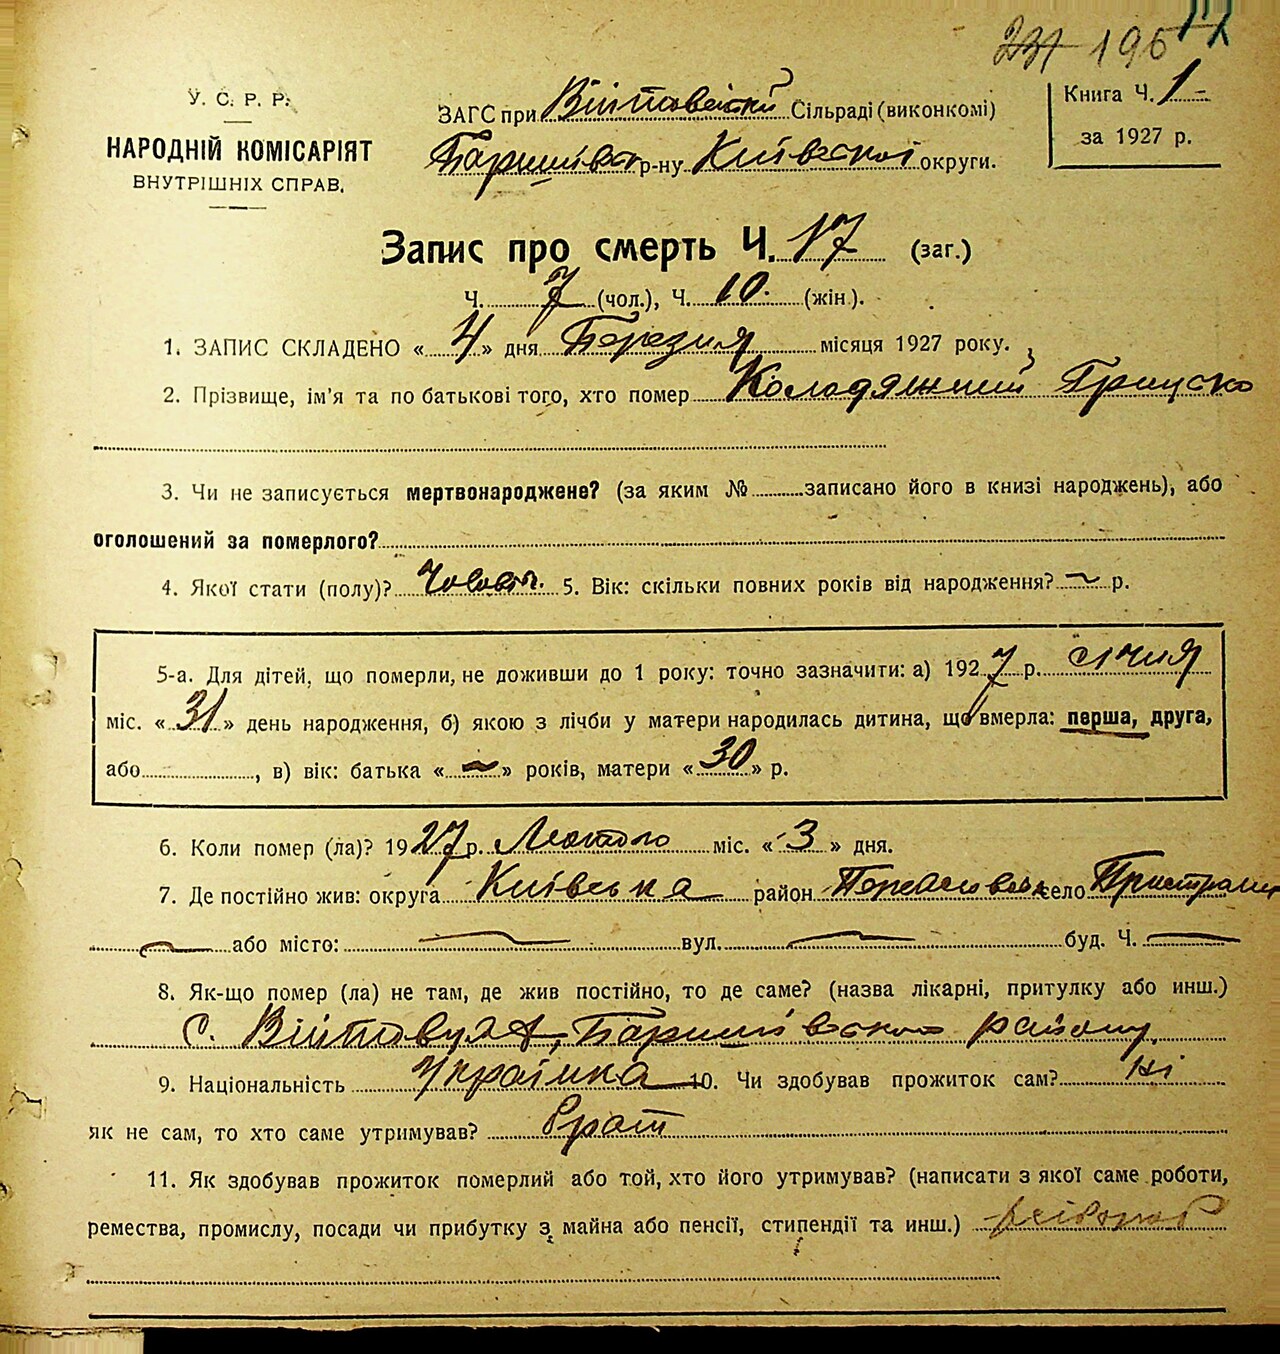 231 195
У. С. Р. Р.
НАРОДНІЙ КОМІСАРІЯТ
ВНУТРІШНІХ СПРАВ.
ЗАГС при Війтовеській Сільраді (виконкомі)
Баришівсь р-ну Київської округи.
Книга Ч. 1
за 1927 р.
Запис про смерть Ч. 17 (заг.)
Ч. 7 (чол.), Ч. 10. (жін.).
1. ЗАПИС СКЛАДЕНО « 4 » дня Березня місяця 1927 року.
2. Прізвище, ім'я та по батькові того, хто помер Колодяжний Грицько
3. Чи не записується мертвонароджене? (за яким № записано його в книзі народжень), або
оголошений за померлого?
4. Якої стати (полу)? 5. Вік: скільки повних років від народження? ~ р.
5-а. Для дітей, що померли, не доживши до 1 року: точно зазначити: а) 1927 р. січня
міс. « 31 » день народження, б) якою з лічби у матери народилась дитина, що вмерла: перша, друга,
або , в) вік: батька « ~ » років, матери « 30 » р.
6. Коли помер (ла)? 1927 р. Лютого міс. « 3 » дня.
7. Де постійно жив: округа Київська район село
або місто: вул. буд. Ч.
8. Як-що помер (ла) не там, де жив постійно, то де саме? (назва лікарні, притулку або инш.)
с. Війтовці, Баришівського району
9. Національність Українка 10. Чи здобував прожиток сам? Ні
як не сам, то хто саме утримував? брат
11. Як здобував прожиток померлий або той, хто його утримував? (написати з якої саме роботи,
ремества, промислу, посади чи прибутку з майна або пенсії, стипендії та инш.)